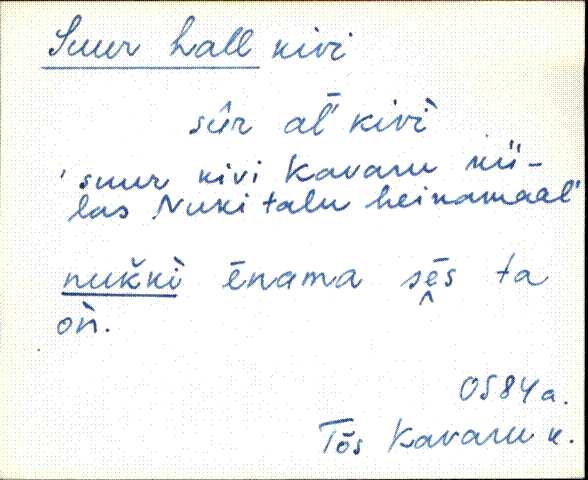 Suur hall kivi
sûr al̄ kivì
'suur kivi Kavaru kü-
las Nuki talu heinamaal'
nuk̆kì ēnama sḙ̄s ta
oǹ.
OS84a.
Tõs Kavaru k.